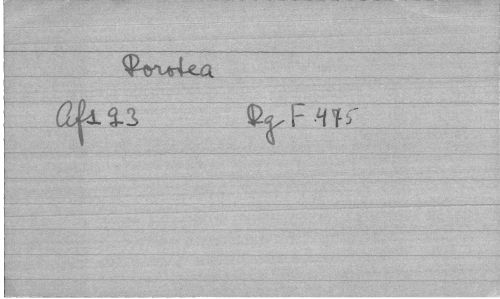 Dorotea
Afs 93
Dg F 475